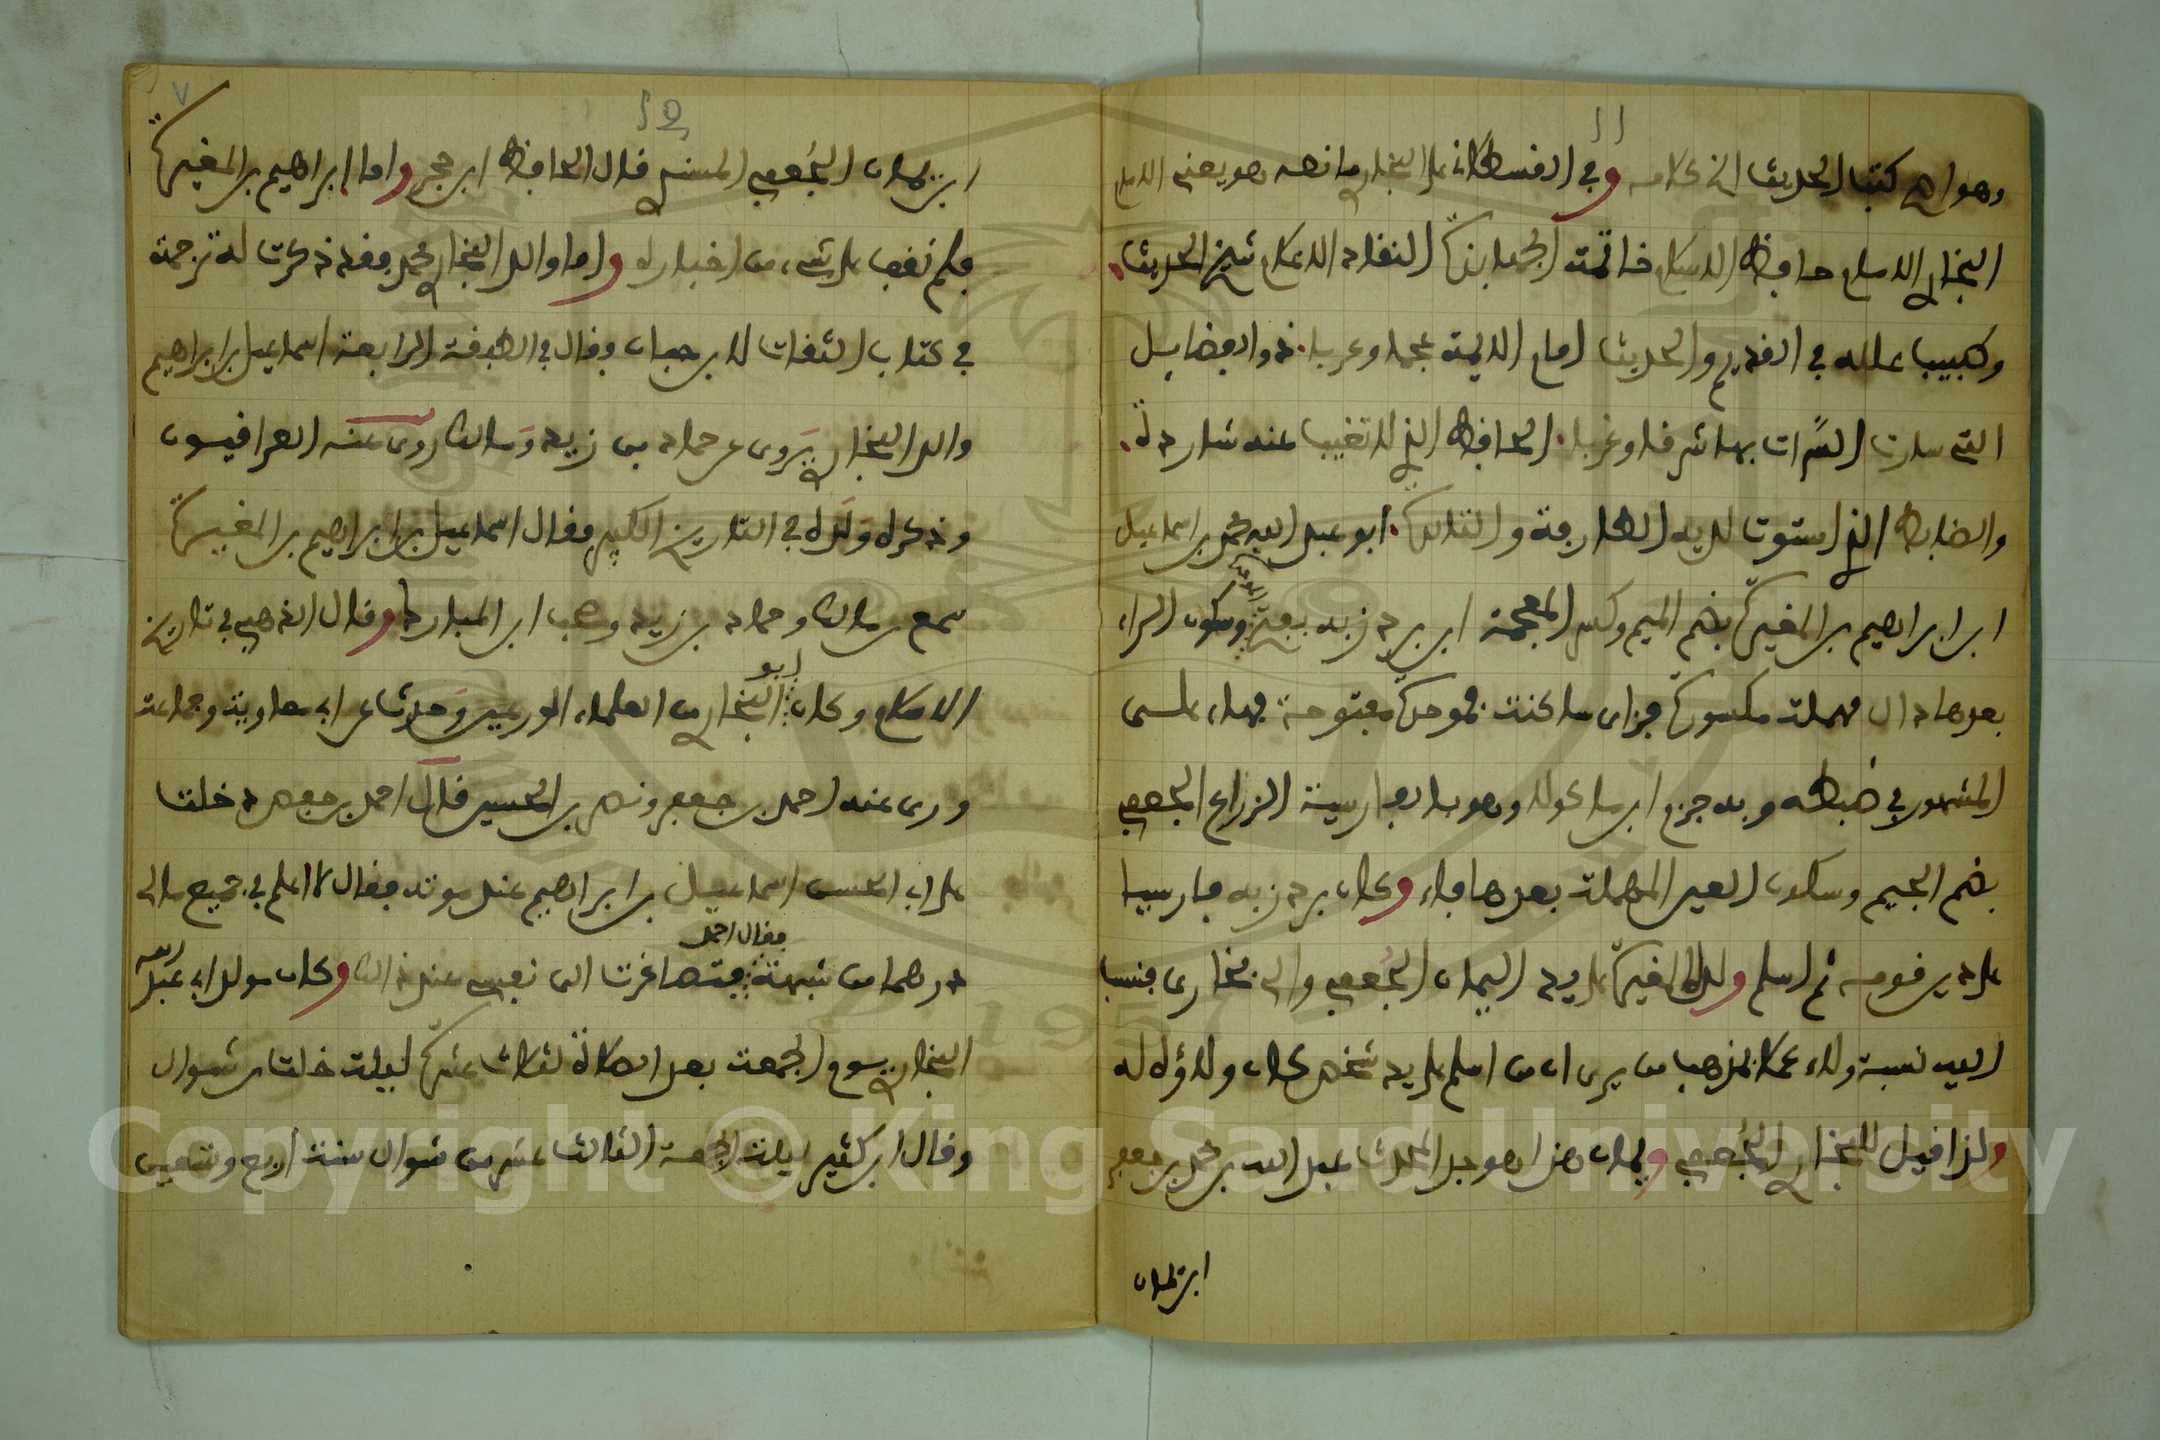 ١١
وهو اهم كتب الحديث الخ كلامه وفي القسطلاني على البخاري ما نصه هو يعني الامام
البخاري الامام حافظ الاسلام خاتمة الجهابذة النقاد الاعلام شيخ الحديث
وطبيب علله في القديم والحديث امام الايمة عجما وعربا ذو الفضايل
التي سارت السراة بها شرقا وغربا الحافظ الذي لا تغيب عنه شاردة
والضابط الذي استوت لديه الطارفة والتلادة ابو عبد الله محمد بن اسماعيل
ابن ابراهيم بن المغيرة بضم الميم وكسر المعجمة ابن بردزبه بفتح الموحدة وسكون الراء
بعدها دال مهملة مكسورة فزاى ساكنة فموحدة مفتوحة فهاء على
المشهور في ضبطه وبه جزم ابن ماكولا وهو بالفارسية الزراع الجعفي
بضم الجيم وسكون العين المهملة بعدها فاء وكان بردزبه فارسيا
على دين قومه ثم اسلم ولده المغيرة على يد اليمان الجُعفي والي بخارى فنسب
اليه نسبة ولاء عملا بمذهب من يرى ان من اسلم على يد شخص كان ولاؤه له
ولذا قيل للبخاري الجُعفي ويمان هذا هو جد المحدث عبد الله بن محمد بن جعفر
ابن يمان
٧
١٢
ابن يمان الجُعفي المسندي قال الحافظ ابن حجر واما ابراهيم بن المغيرة
فلم نقف على شيء من اخباره واما والد البخاري محمد فقد ذكرت له ترجمة
في كتاب الثقات لابن حبان وقال في الطبقة الرابعة اسماعيل بن ابراهيم
والد البخاري يَروى عن حماد بن زيد وَمالك روى عنه العراقيون
وذكره وَلَده في التاريخ الكبير فقال اسماعيل بن ابراهيم بن المغيرة
سمع من مالك وحماد بن زيد وصحب ابن المبارك وقال الذهبي في تاريخ
الاسلام وكان ابو البخاري من العلماء الورعين وَحدث عن ابي معاوية وجماعة
وروى عنه احمد بن جعفر ونصر بن الحسين قال احمد بن جعفر دخلت
على ابي الحسن اسماعيل بن ابراهيم عند موته فقال لا اعلم في جميع مالي
درهما من شبهة فقال احمد فتصاغرت الى نفسي عند ذلك وكان مولد ابي عبد الله
البخاري يوم الجمعة بعد الصلاة لثلاث عشرة ليلة خلت من شوال
وقال ابن كثير ليلة الجمعة الثالث عشر من شوال سنة اربع وتسعين